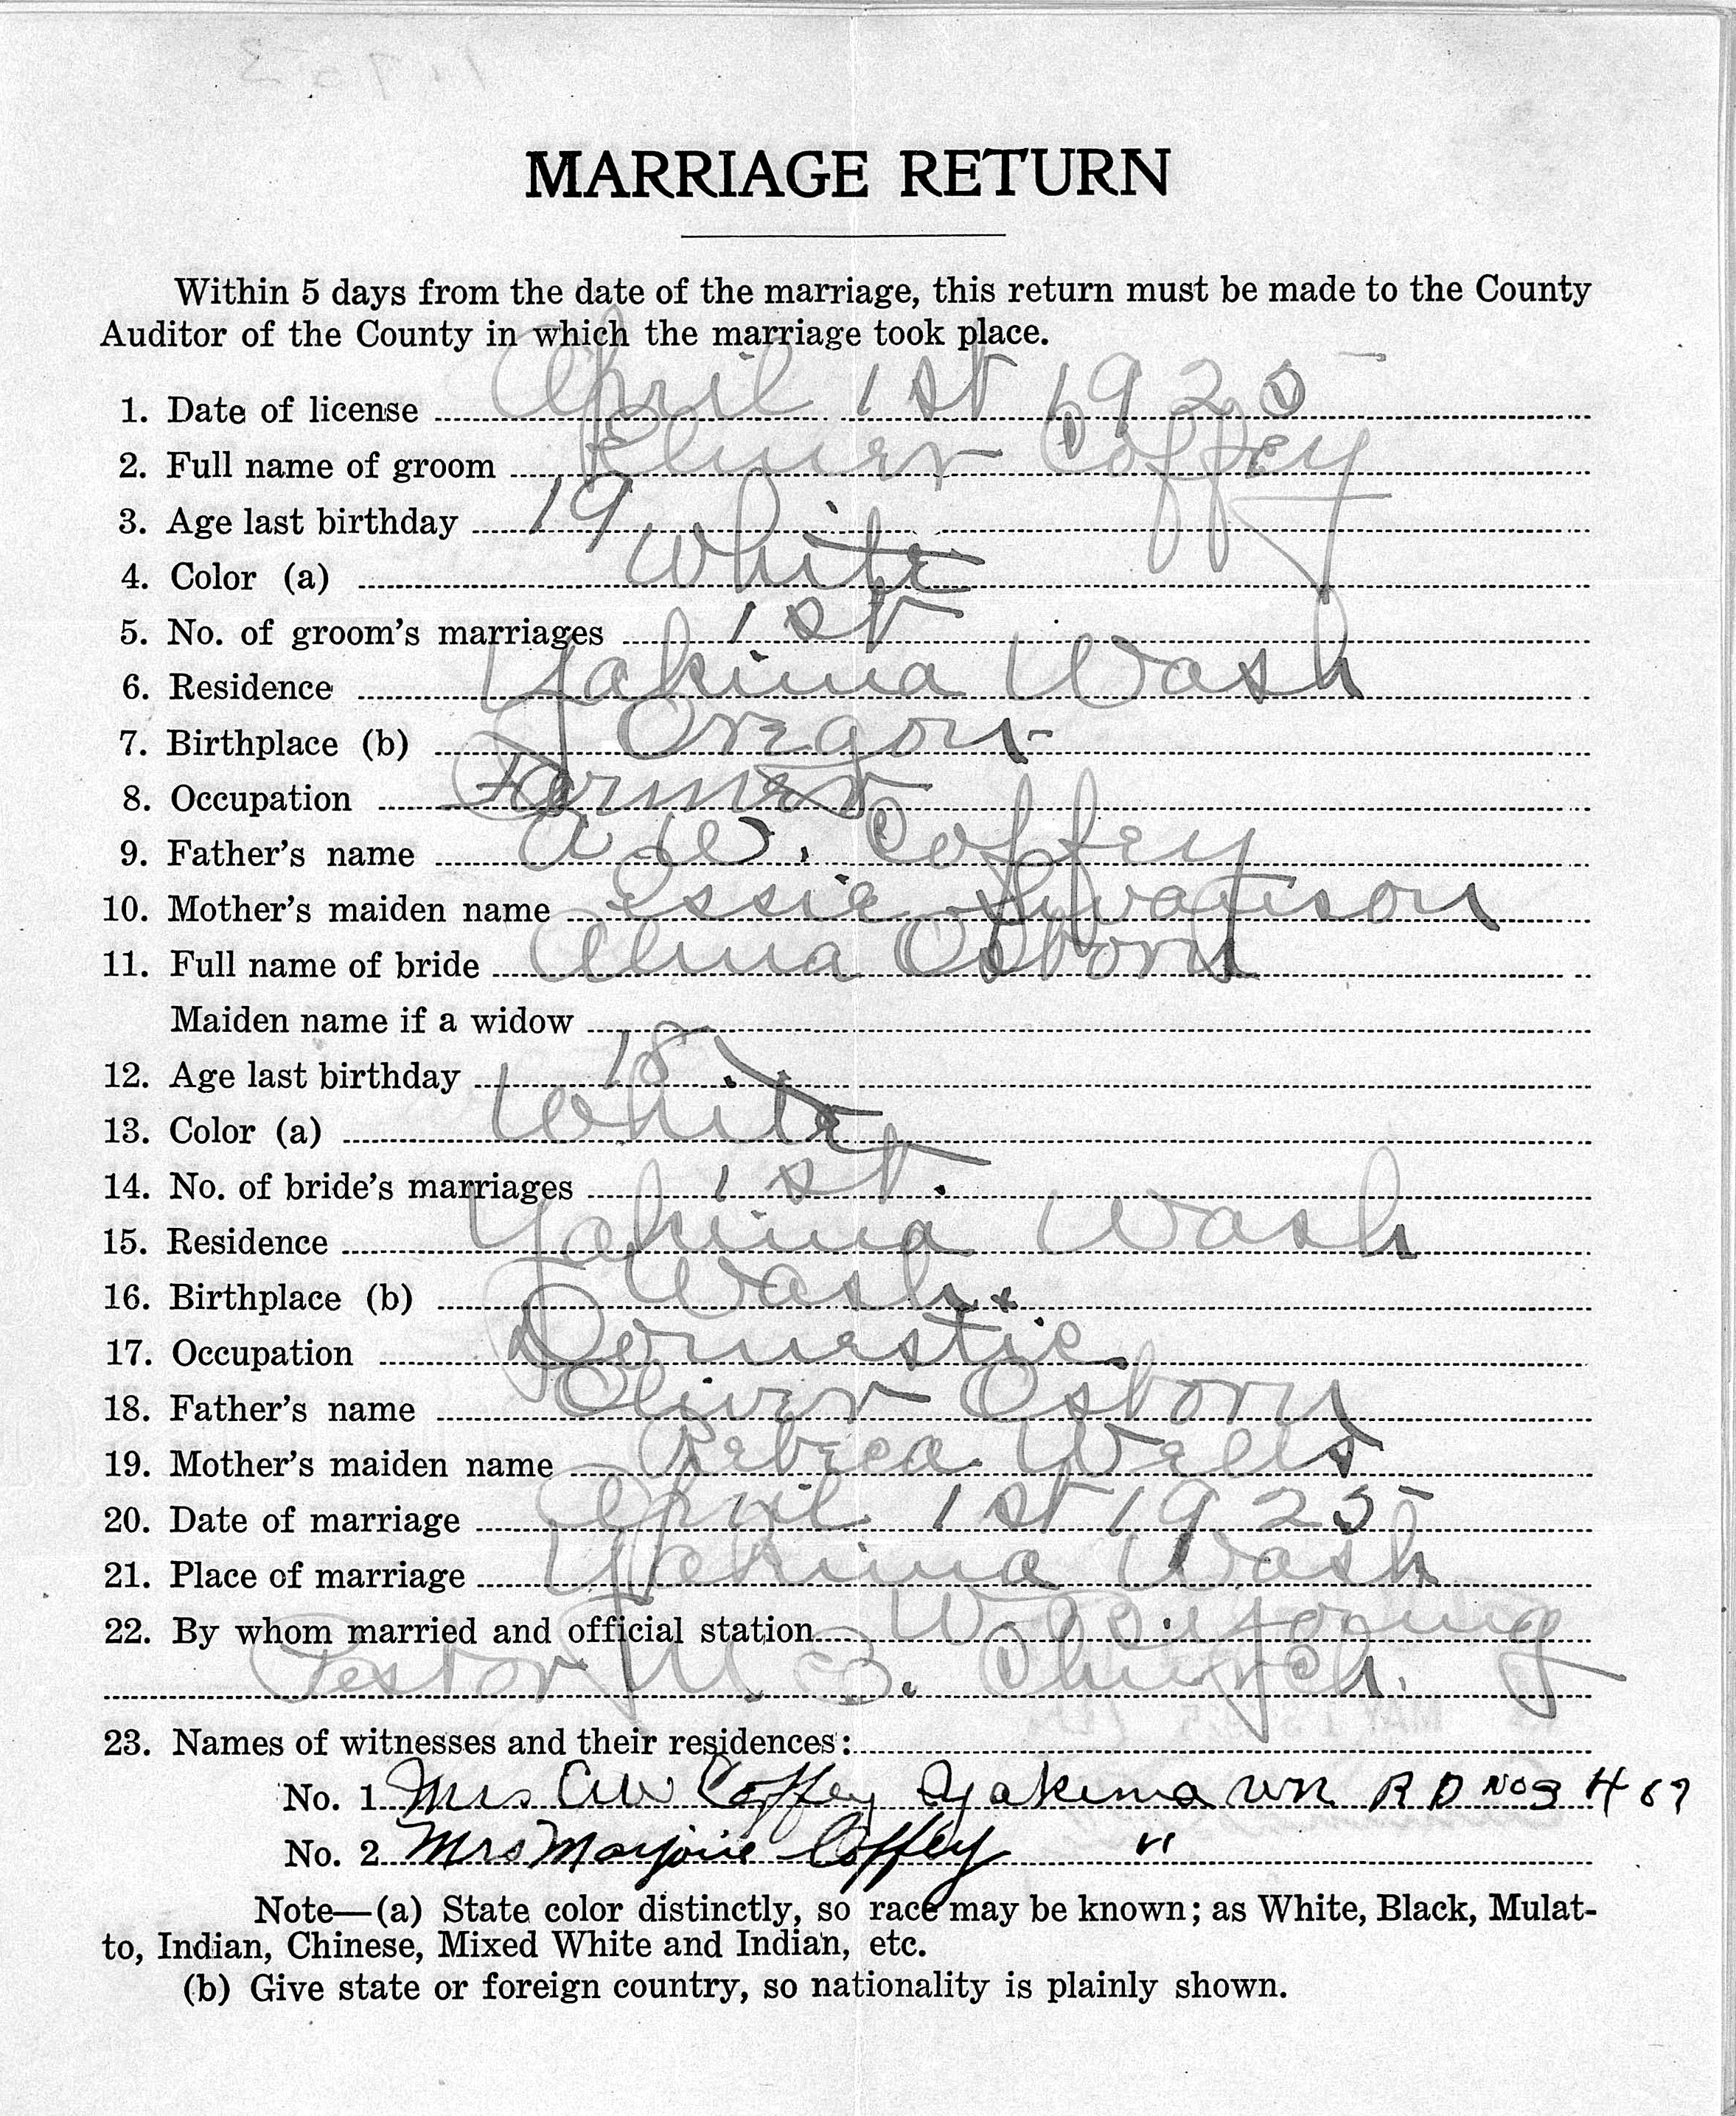 MARRIAGE RETURN
Within 5 days from the date of the marriage, this return must be made to the County
Auditor of the County in which the marriage took place.
1. Date of license April 1st 1925
2. Full name of groom Elmer Coffey
3. Age last birthday 19
4. Color (a) White
5. No. of groom's marriages 1st
6. Residence Yakima Wash
7. Birthplace (b) Oregon
8. Occupation Farmer
9. Father's name A. W. Coffey
10. Mother's maiden name Essie
11. Full name of bride Alma Osborn
Maiden name if a widow
12. Age last birthday 18
13. Color (a) White
14. No. of bride's marriages 1st.
15. Residence Yakima Wash
16. Birthplace (b) Wash.
17. Occupation Domestic
18. Father's name Oliver Osborn
19. Mother's maiden name Rebeca Wells
20. Date of marriage April 1st 1925
21. Place of marriage Yakima Wash
22. By whom married and official station W. Young
Pastor M. E. Church.
23. Names of witnesses and their residences:
No. 1 Mrs AW Coffey Yakima Wn R D No 3
No. 2 Mrs Marjorie Coffey "
Note—(a) State color distinctly, so race may be known; as White, Black, Mulat-
to, Indian, Chinese, Mixed White and Indian, etc.
(b) Give state or foreign country, so nationality is plainly shown.